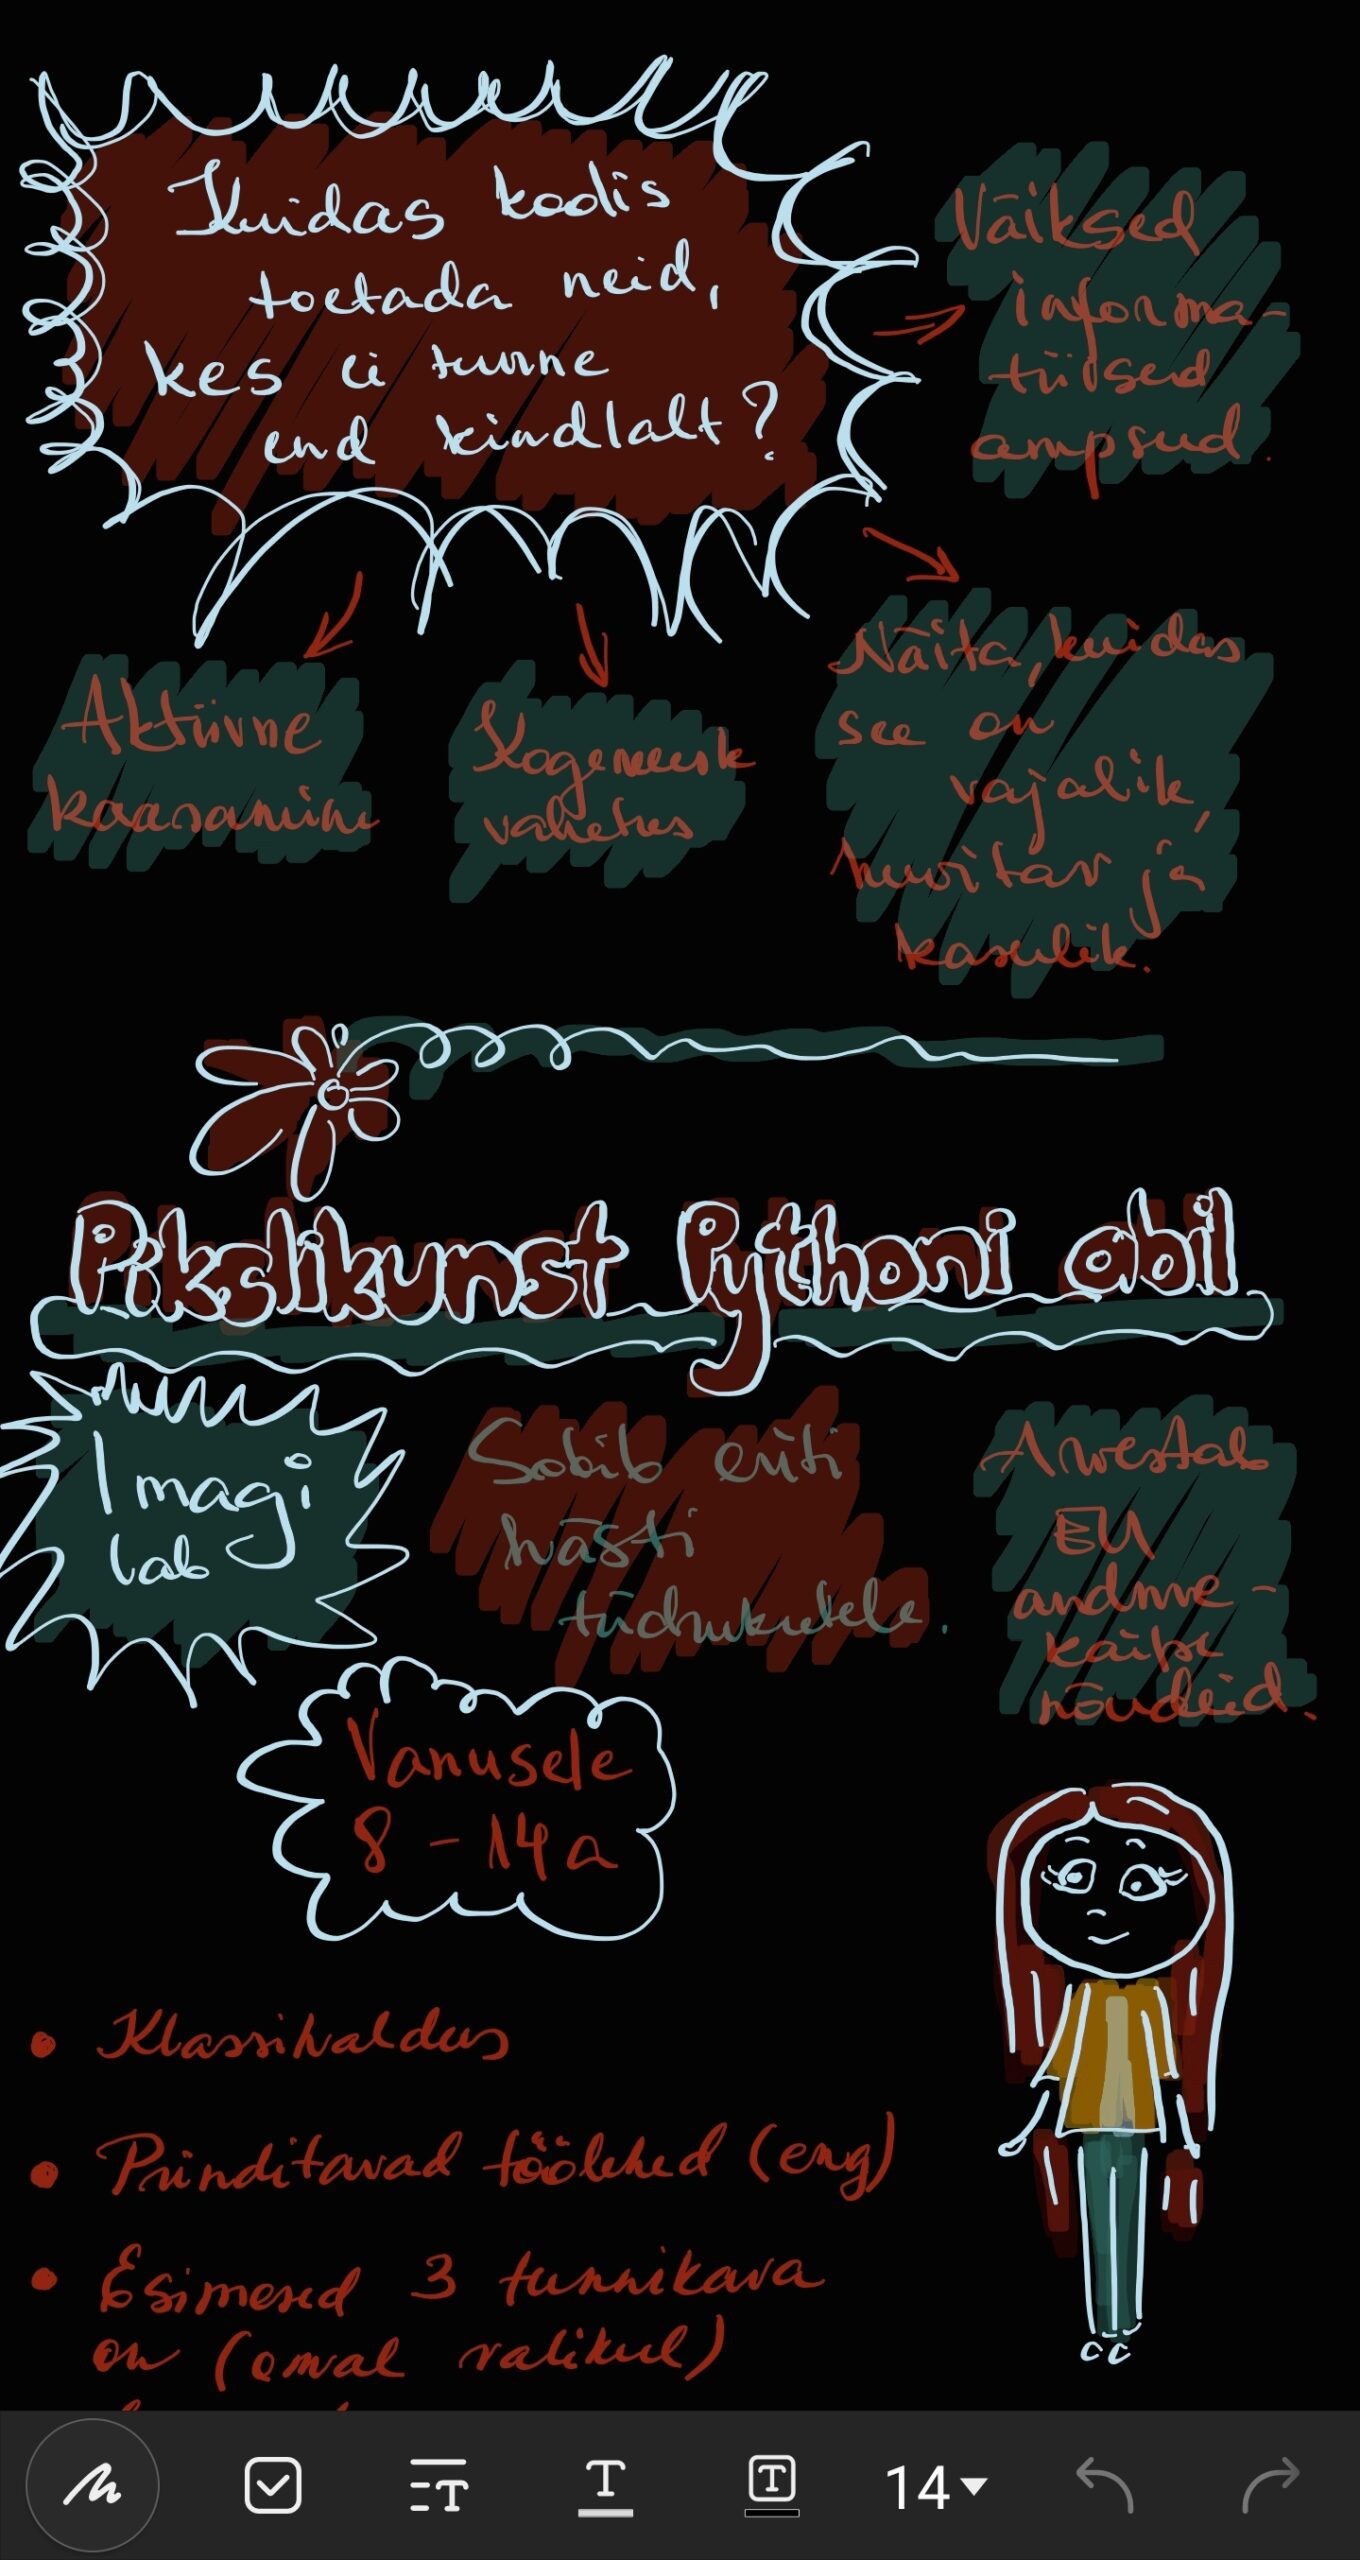 Kuidas koolis
toetada neid,
kes ei tunne
end kindlalt?
Väiksed
informa-
tiivsed
ampsud.
Aktiivne
kaasamine
Kogemusk
vahetus
Näita, kuidas
see on
vajalik,
huvitav ja
kasulik.
Pikslikunst Pythoni abil
Imagi
lab
Sobib eriti
hästi
tüdrukutele.
Arvestab
EU
andme-
kaitse
nõudeid.
Vanusele
8 - 14 a
• Klassihaldus
• Prinditavad töölehed (eng)
• Esimesed 3 tunnikava
on (omal valikul)
14